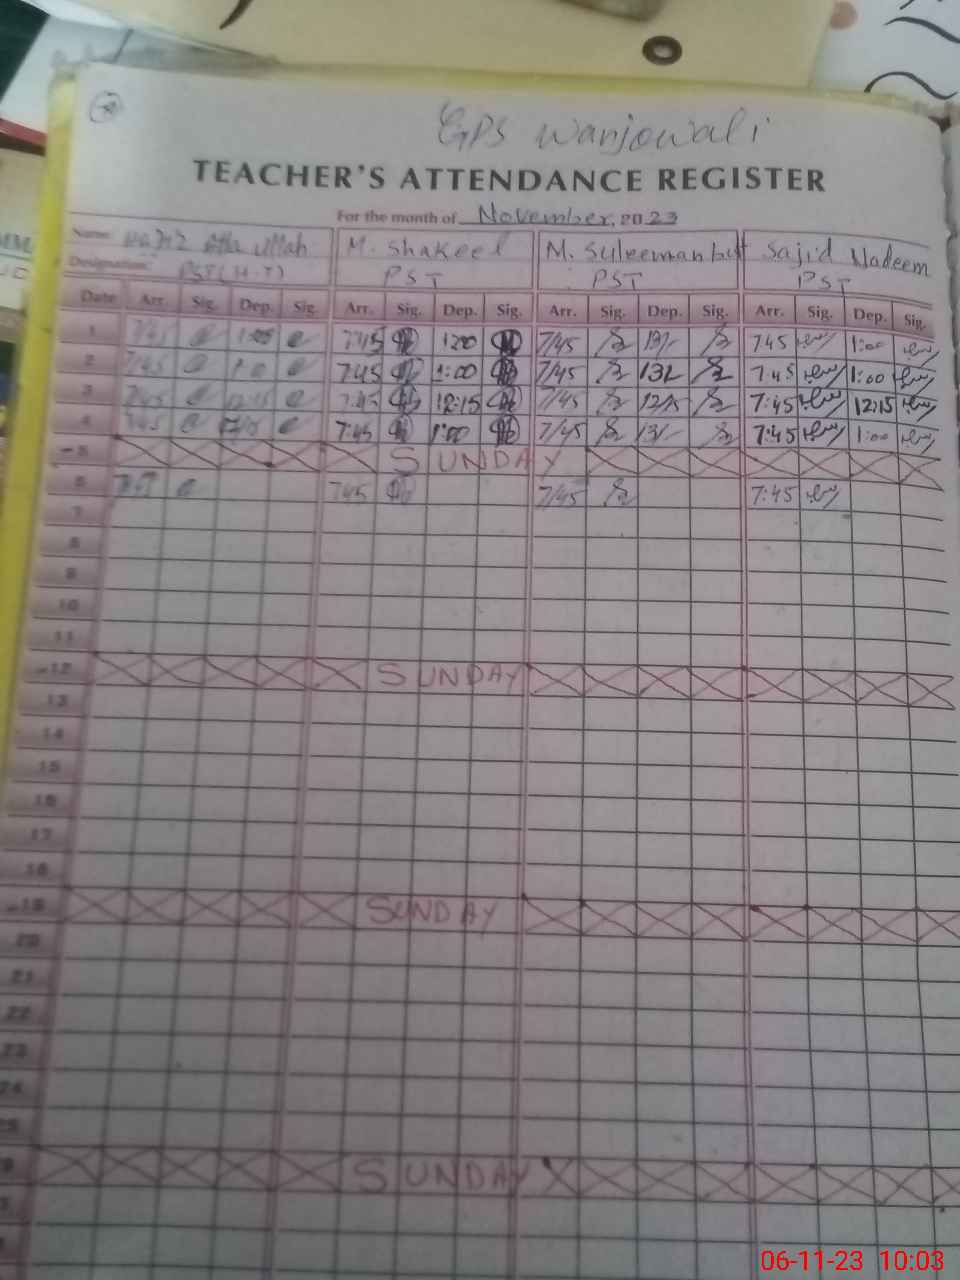 GPS Wanjowali
TEACHER'S ATTENDANCE REGISTER
For the month of November, 2023
Name: Atta Ullah M. Shakeel M. Suleeman but Sajid Nadeem
Designation: PST (H.T) PST PST PST
Date Arr. Sig. Dep. Sig. Arr. Sig. Dep. Sig. Arr. Sig. Dep. Sig. Arr. Sig. Dep. Sig.
1 7/45 7:45 1:00 7/45 7:45 1:00
2 7/45 7:45 1:00 7/45 131 7:45 1:00
3 7/45 12/15 7:45 12:15 7/45 12/15 7:45 12:15
4 7/45 7:45 1:00 7/45 131 7:45 1:00
5 SUNDAY
6 7:45 7/45 7:45
7
8
9
10
11
12 SUNDAY
13
14
15
16
17
18
19 SUNDAY
20
21
22
23
24
25
SUNDAY
06-11-23 10:03